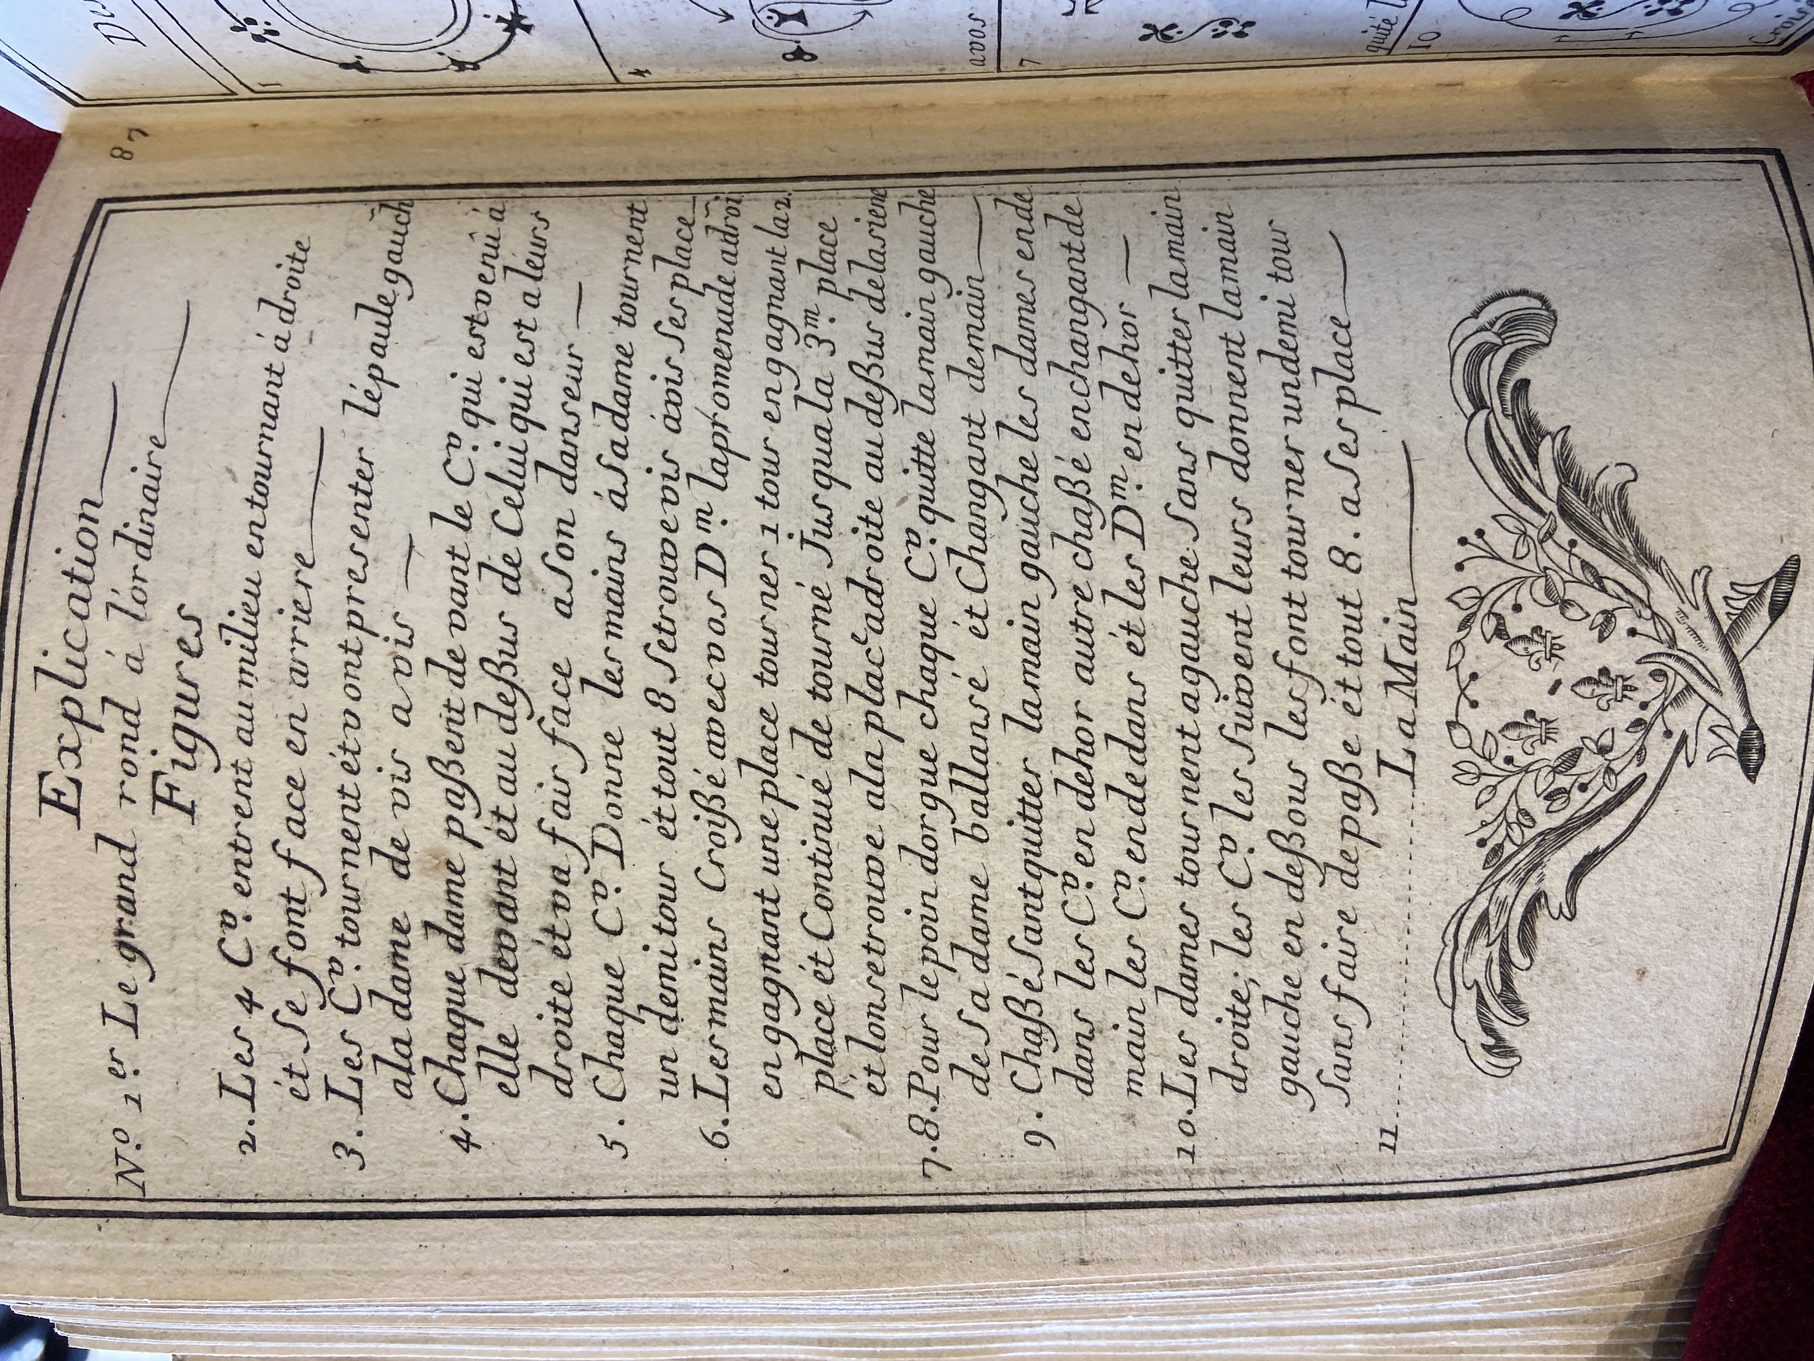 87
Explication
N.º 1.er Le grand rond á l'ordinaire
Figures
2. Les 4 C.v entrent au milieu entournant á droite
ét se font face en arriere
3. Les C.v tournent ét vont presenter lépaule gauch
ala dame de vis a vis
4. Chaque dame paßent de vant le C.v qui est venû á
elle devant ét au deßus de Celui qui est a leurs
droite ét va fair face a son danseur
5. Chaque C.v Donne les mains ásadame tournent
un demi tour ét tout 8 se trouve vis ávis ses place
6. Les mains Croißé avec vos D.m la promenade adroi
en gagnant une place tourner 1 tour en gagnant la 2.
place ét Continué de tourné Jusqua la 3.m place
ét lonsetrouve ala place adroite au deßus delasiene
7.8. Pour le poin dorgue chaque C.v quitte lamain gauche
de sa dame ballansé ét Changant demain
9. Chaßé Sant quitter lamain gauche les dames ende
dans les C.v en dehor autre chaßé en changant de
main les C.v en dedans ét les D.m en dehor
10. Les dames tournent agauche Sans quitter lamain
droite; les C.v les Suivent leurs donnent lamain
gauche en deßous les font tourner undemi tour
Sans faire depaße ét tout 8. a ses place
11 ............... La Main
1
4
8
avos
7
quité l
10
Croisé